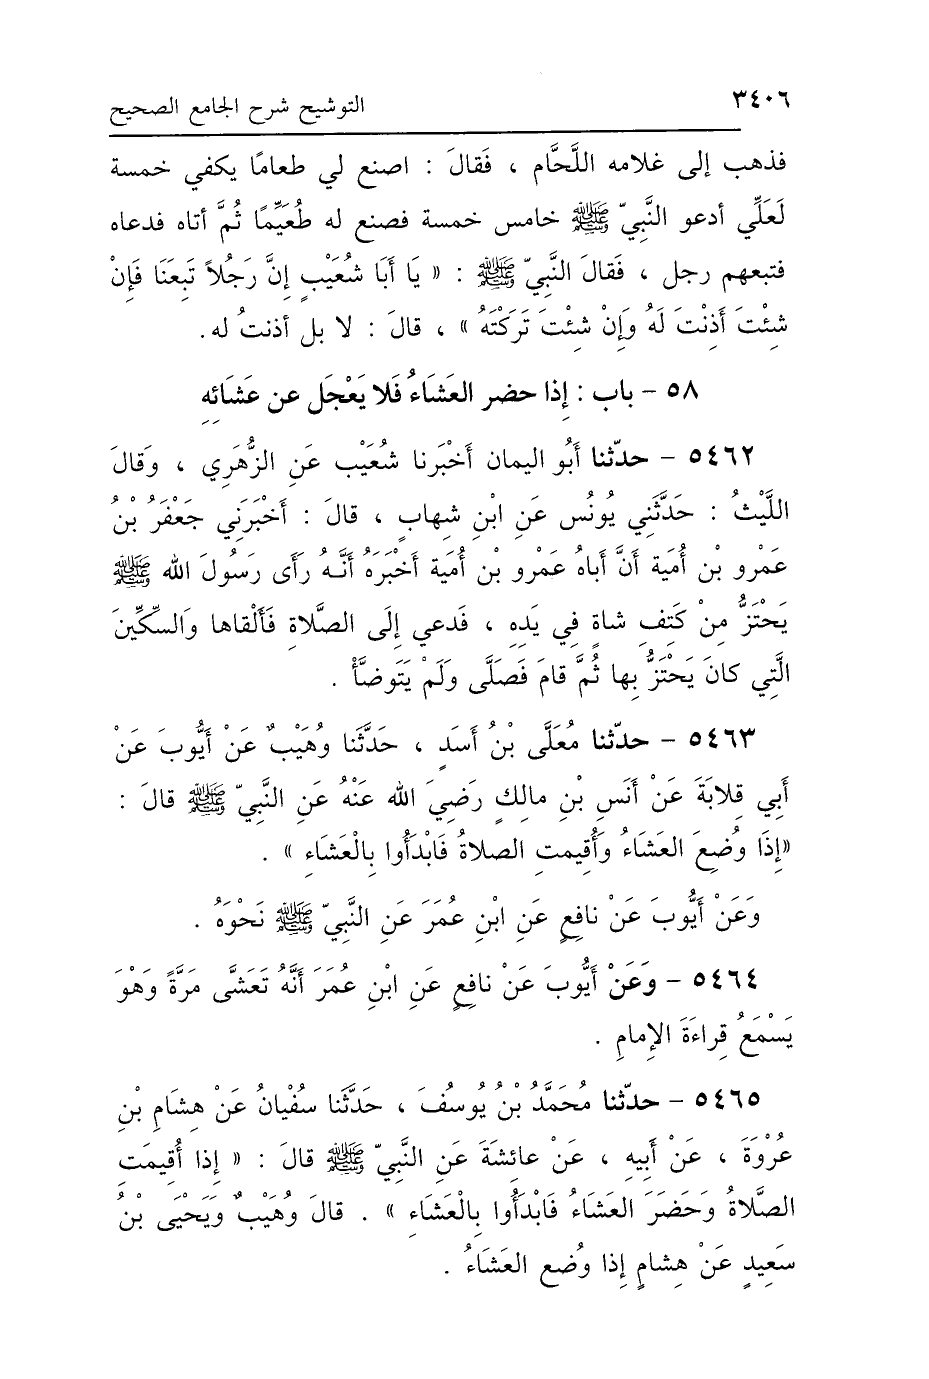 ٣٤٠٦ التوشيح شرح الجامع الصحيح
فذهب إلى غلامه اللَّحَّام ، فَقالَ : اصنع لي طعامًا يكفي خمسة
لَعَلِّي أدعو النَّبِيّ ﷺ خامس خمسة فصنع له طُعَيِّمًا ثُمَّ أتاه فدعاه
فتبعهم رجل ، فَقالَ النَّبِيّ ﷺ : « يَا أَبَا شُعَيْبٍ إِنَّ رَجُلاً تَبِعَنَا فَإِنْ
شِئْتَ أَذِنْتَ لَهُ وَإِنْ شِئْتَ تَرَكْتَهُ » ، قالَ : لا بل أذنتُ له.
٥٨ - باب : إِذا حضر العَشَاءُ فَلا يَعْجَل عن عَشَائِهِ
٥٤٦٢ - حدّثنا أَبُو اليمان أَخْبَرنا شُعَيْب عَنِ الزُّهَرِي ، وَقالَ
اللَّيْثُ : حَدَّثَنِي يُونُس عَنِ ابْنِ شِهابٍ ، قالَ : أَخْبَرَنِي جَعْفَرُ بْنُ
عَمْرِو بْن أُمَية أَنَّ أَباهُ عَمْرو بْن أُمَية أَخْبَرَهُ أَنَّـهُ رَأَى رَسُولَ الله ﷺ
يَحْتَزُّ مِنْ كَتِفِ شاةٍ فِي يَدِهِ ، فَدعي إِلَى الصَّلاةِ فَأَلْقاها وَالسكِّينَ
الَّتِي كانَ يَحْتَزُّ بِها ثُمَّ قامَ فَصَلَّى وَلَمْ يَتَوضَّأْ .
٥٤٦٣ - حدّثنا مُعَلَّى بْنُ أَسَدٍ ، حَدَّثَنا وُهَيْبٌ عَنْ أَيُّوبَ عَنْ
أَبِي قِلابَةَ عَنْ أَنَسِ بْنِ مالِكٍ رضِيَ الله عَنْهُ عَنِ النَّبِيّ ﷺ قالَ :
«إِذَا وُضِعَ العَشَاءُ وَأُقِيمتِ الصلاةُ فَابْدَأُوا بِالْعَشَاءِ » .
وَعَنْ أَيُّوبَ عَنْ نافِعٍ عَنِ ابْنِ عُمَرَ عَنِ النَّبِيّ ﷺ نَحْوَهُ .
٥٤٦٤ - وَعَنْ أَيُّوبَ عَنْ نافِعٍ عَنِ ابْنِ عُمَرَ أَنَّهُ تَعَشَّى مَرَّةً وَهْوَ
يَسْمَعُ قِراءَةَ الإِمامِ .
٥٤٦٥ - حدّثنا مُحَمَّدُ بْنُ يُوسُفَ ، حَدَّثَنا سفْيانُ عَنْ هِشَامِ بْنِ
عُرْوَةَ ، عَنْ أَبِيهِ ، عَنْ عائِشَةَ عَنِ النَّبِيّ ﷺ قالَ : « إِذا أُقِيمَتِ
الصَّلاةُ وَحَضَرَ العَشَاءُ فَابْدَأُوا بِالْعَشَاءِ » . قالَ وُهَيْبٌ وَيَحْيَى بْنُ
سَعِيدٍ عَنْ هِشامٍ إِذا وُضع العَشَاءُ .